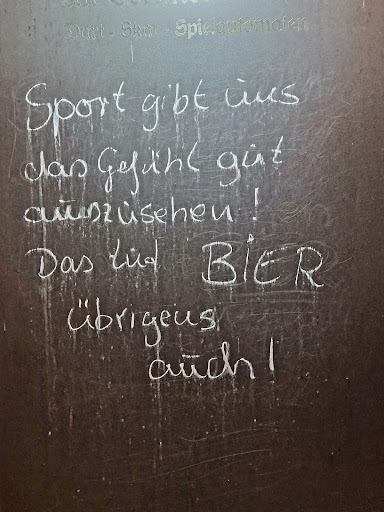 Dart - Skat - Spielautomaten
Sport gibt uns
das Gefühl gut
auszusehen!
Das tut BIER
übrigens
auch!